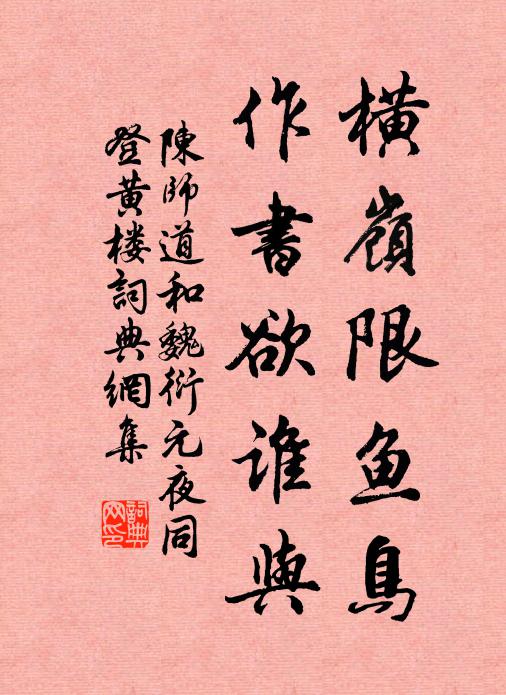 橫嶺限鱼鳥
作書欲誰與
陳師道和魏衍元夜同
登黄楼詞典網集
詞典网印